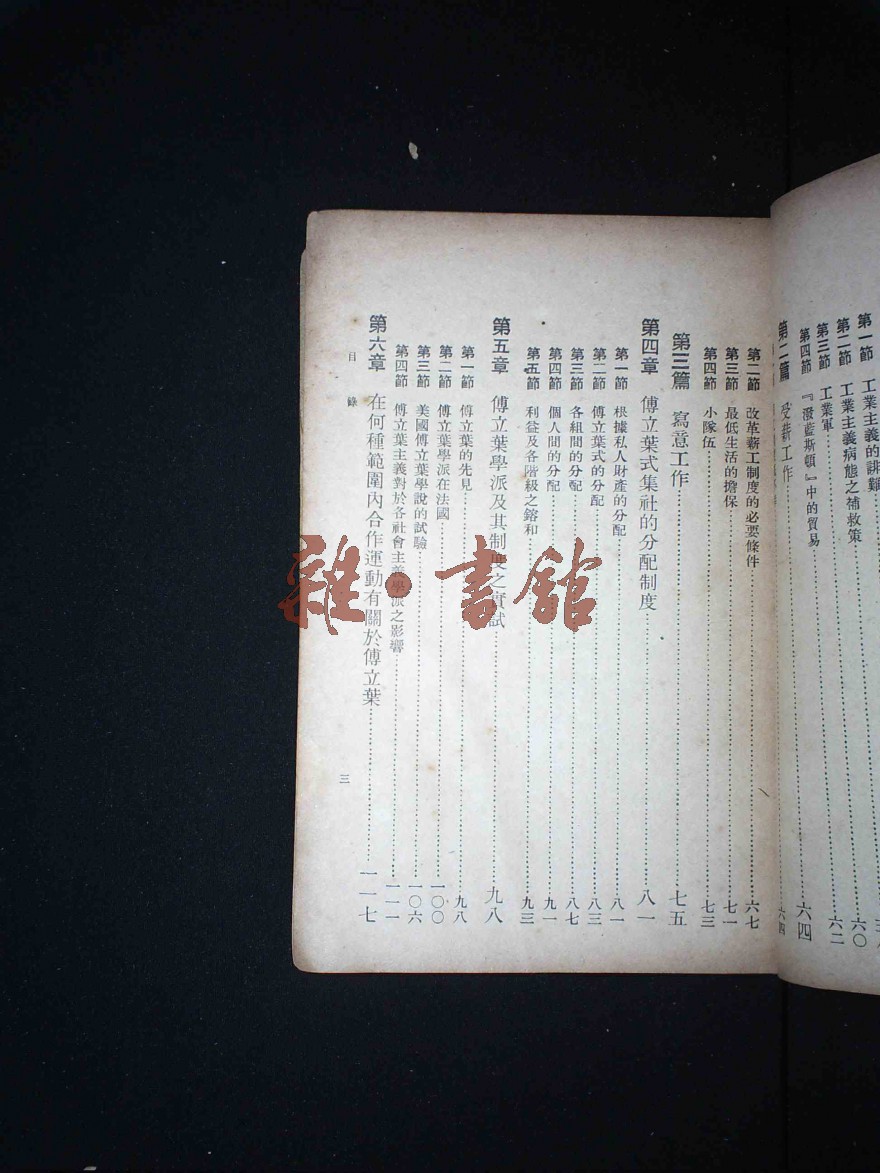 第一節 工業主義的誹
第二節 工業主義病態之補救策 六〇
第三節 工業軍 六二
第四節 『潑藍斯頓』中的貿易 六四
第二篇 受薪工作 六四
第二節 改革薪工制度的必要條件 六七
第三節 最低生活的擔保 七一
第四節 小隊伍 七三
第三篇 寫意工作 七五
第四章 傅立葉式集社的分配制度 八一
第一節 根據私人財產的分配 八一
第二節 傅立葉式的分配 八三
第三節 各組間的分配 八七
第四節 個人間的分配 九一
第五節 利益及各階級之鎔和 九三
第五章 傅立葉學派及其制度之實試 九八
第一節 傅立葉的先見 九八
第二節 傅立葉學派在法國 一〇〇
第三節 美國傅立葉學說的試驗 一〇六
第四節 傅立葉主義對於各社會主義學派之影響 一一一
第六章 在何種範圍內合作運動有關於傅立葉 一一七
目錄 三
雜·書館